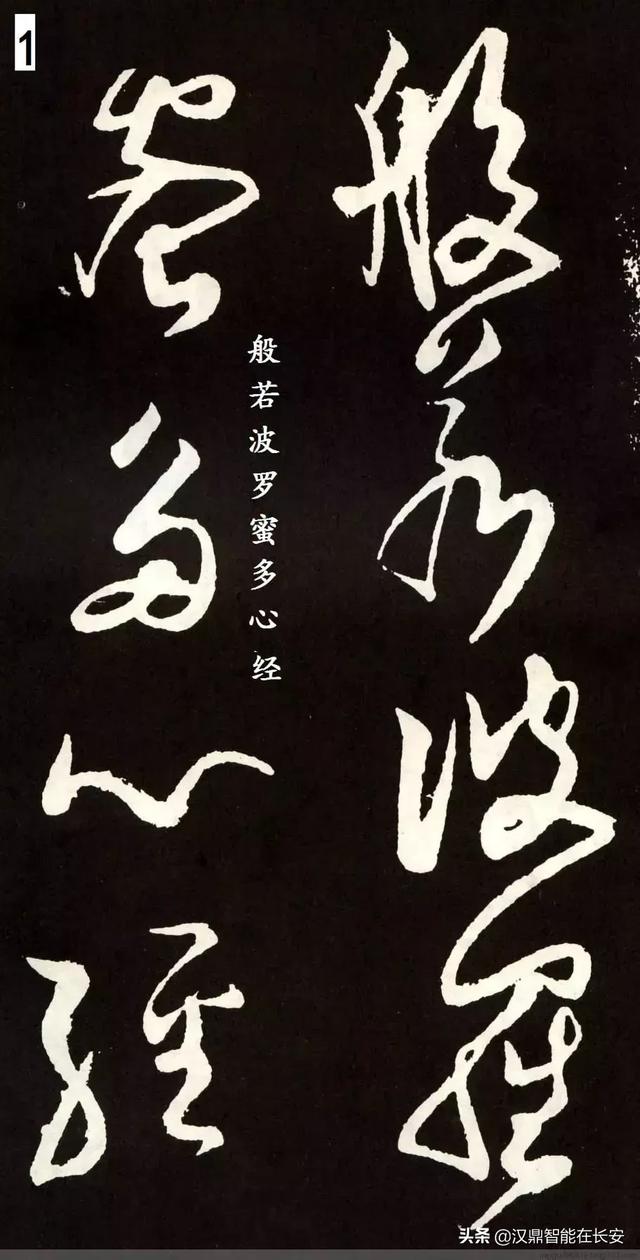 1
般若波羅
蜜多心經
般若波罗蜜多心经
头条 @汉鼎智能在长安